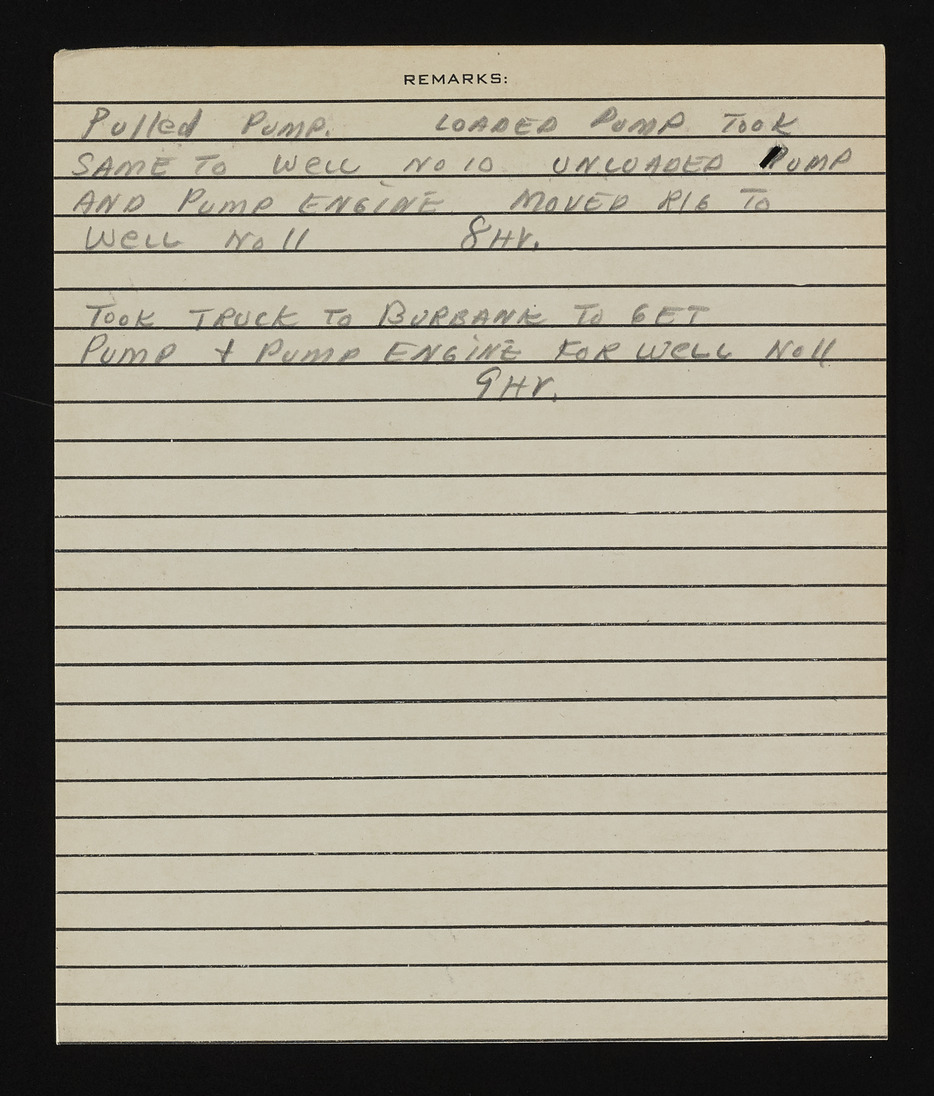 REMARKS:
Pulled PUMP. LOADED PUMP TOOK
SAME TO WELL NO 10 UNLOADED PUMP
AND PUMP ENGINE MOVED RIG TO
WELL No 11 8 HR.
TOOK TRUCK TO BURBANK TO GET
PUMP + PUMP ENGINE FOR WELL No 11
9 HR.